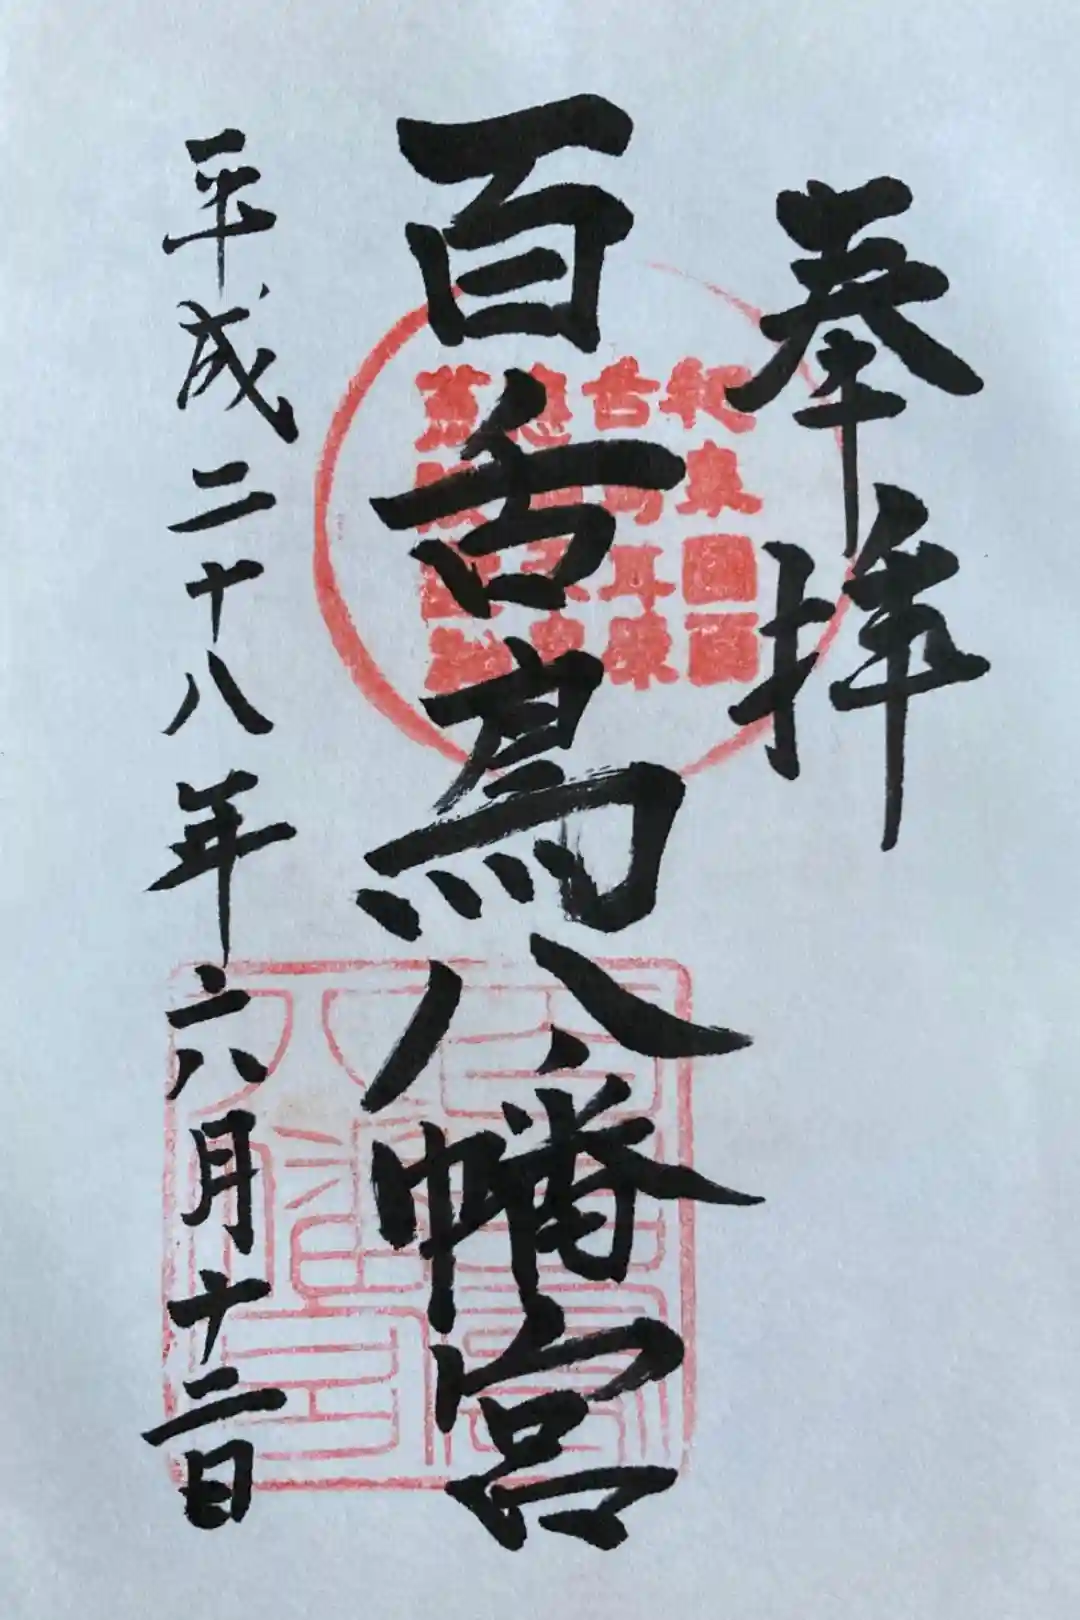 奉拝
百舌鳥八幡宮
平成二十八年六月十二日